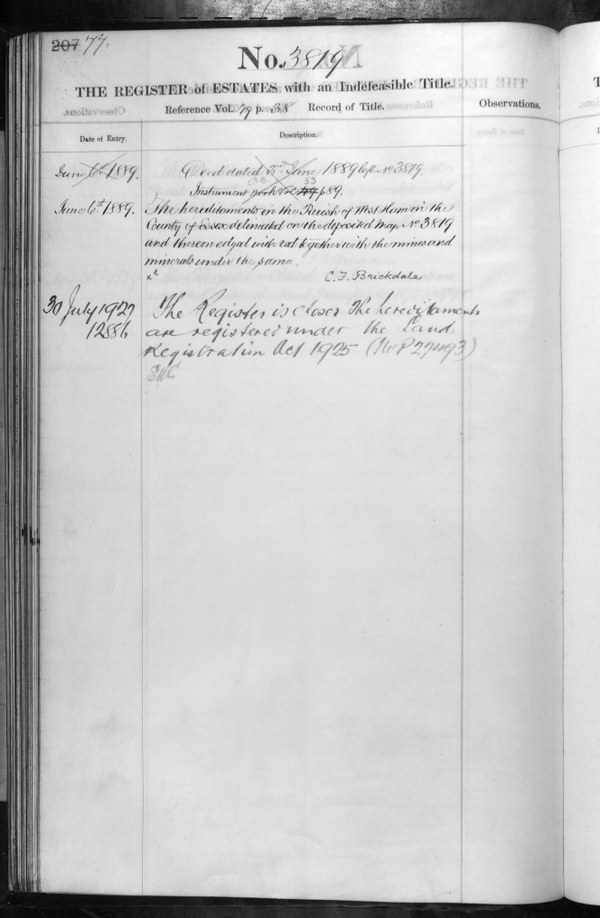 207 77.
No. 3819
THE REGISTER of ESTATES with an Indefeasible Title.
Reference Vol. 79 p. 38 Record of Title.
Observations.
Date of Entry.
Description.
June 6th 1889.
Deed dated 3rd June 1889 left No 3819
53
Instrument book Vol 49 p 89.
June 6th 1889.
The hereditaments in the Parish of West Ham in the
County of Essex delineated on the deposited Map No 3819
and thereon edged with red together with the mines and
minerals under the same.
C. F. Brickdale
30 July 1927
12886
The Register is closed The hereditaments
are registered under the Land
Registration Act 1925 (No P 27493)